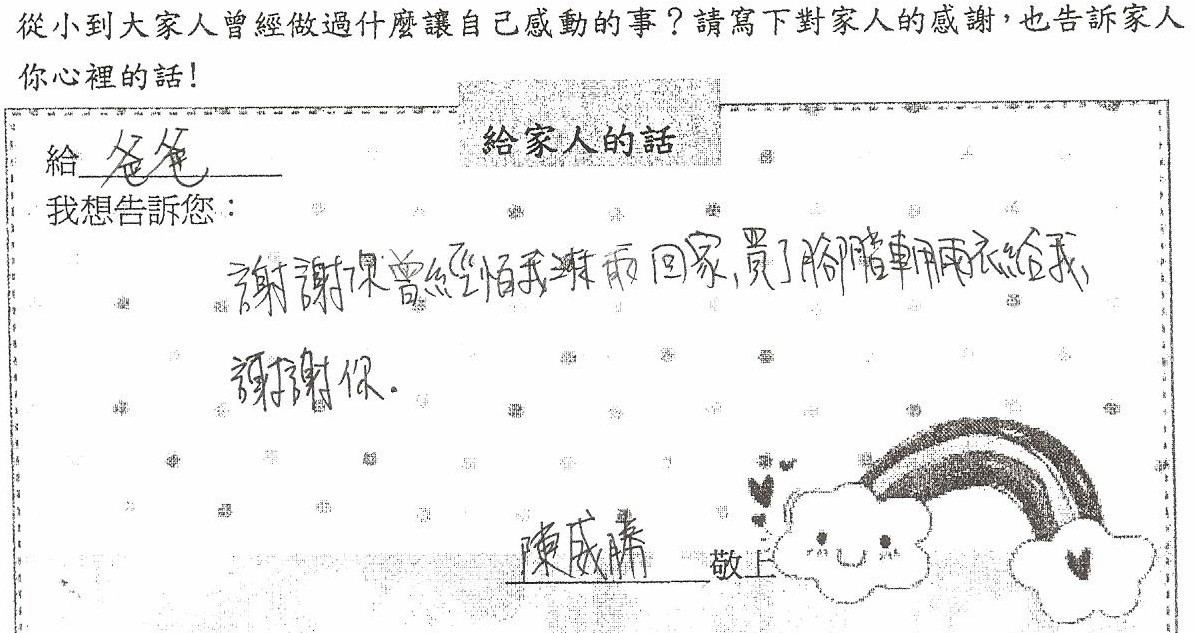 從小到大家人曾經做過什麼讓自己感動的事?請寫下對家人的感謝,也告訴家人
你心裡的話!
給家人的話
給爸爸
我想告訴您:
謝謝你曾經怕我淋雨回家,買了腳踏車用雨衣給我,
謝謝你.
陳威勝 敬上